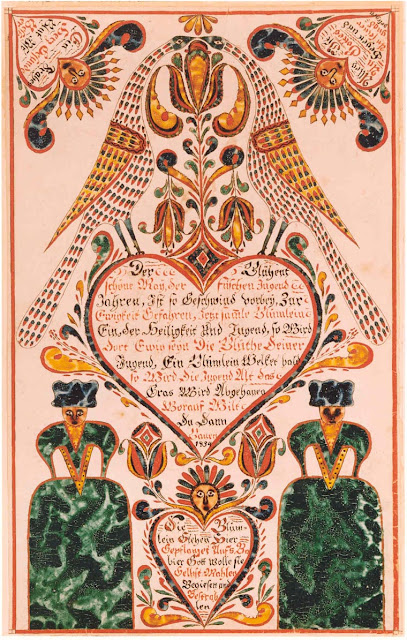 Der Blühent
schöne May, der frischen Jugend
Jahren, Ist so Geschwind vorbey, Zur
Ewigkeit Erfahren, Jetz samle Blümlein
Ein, der Heiligkeit Und Jugend, so Wird
Dort Ewig seyn Die Blüthe Deiner
Jugend, Ein Blümlein Welket bald
so Wird Die Jugend Alt das
Gras Wird Abgehauen
Worauf Wilt
Du Dann
Bauen
1834
Die Blüm
lein Stehen Hier
Gepflanzet Aufs Pa
bier Gott Wolle sie
Selbst Mahlen
Begiesen und
Bestrah
len